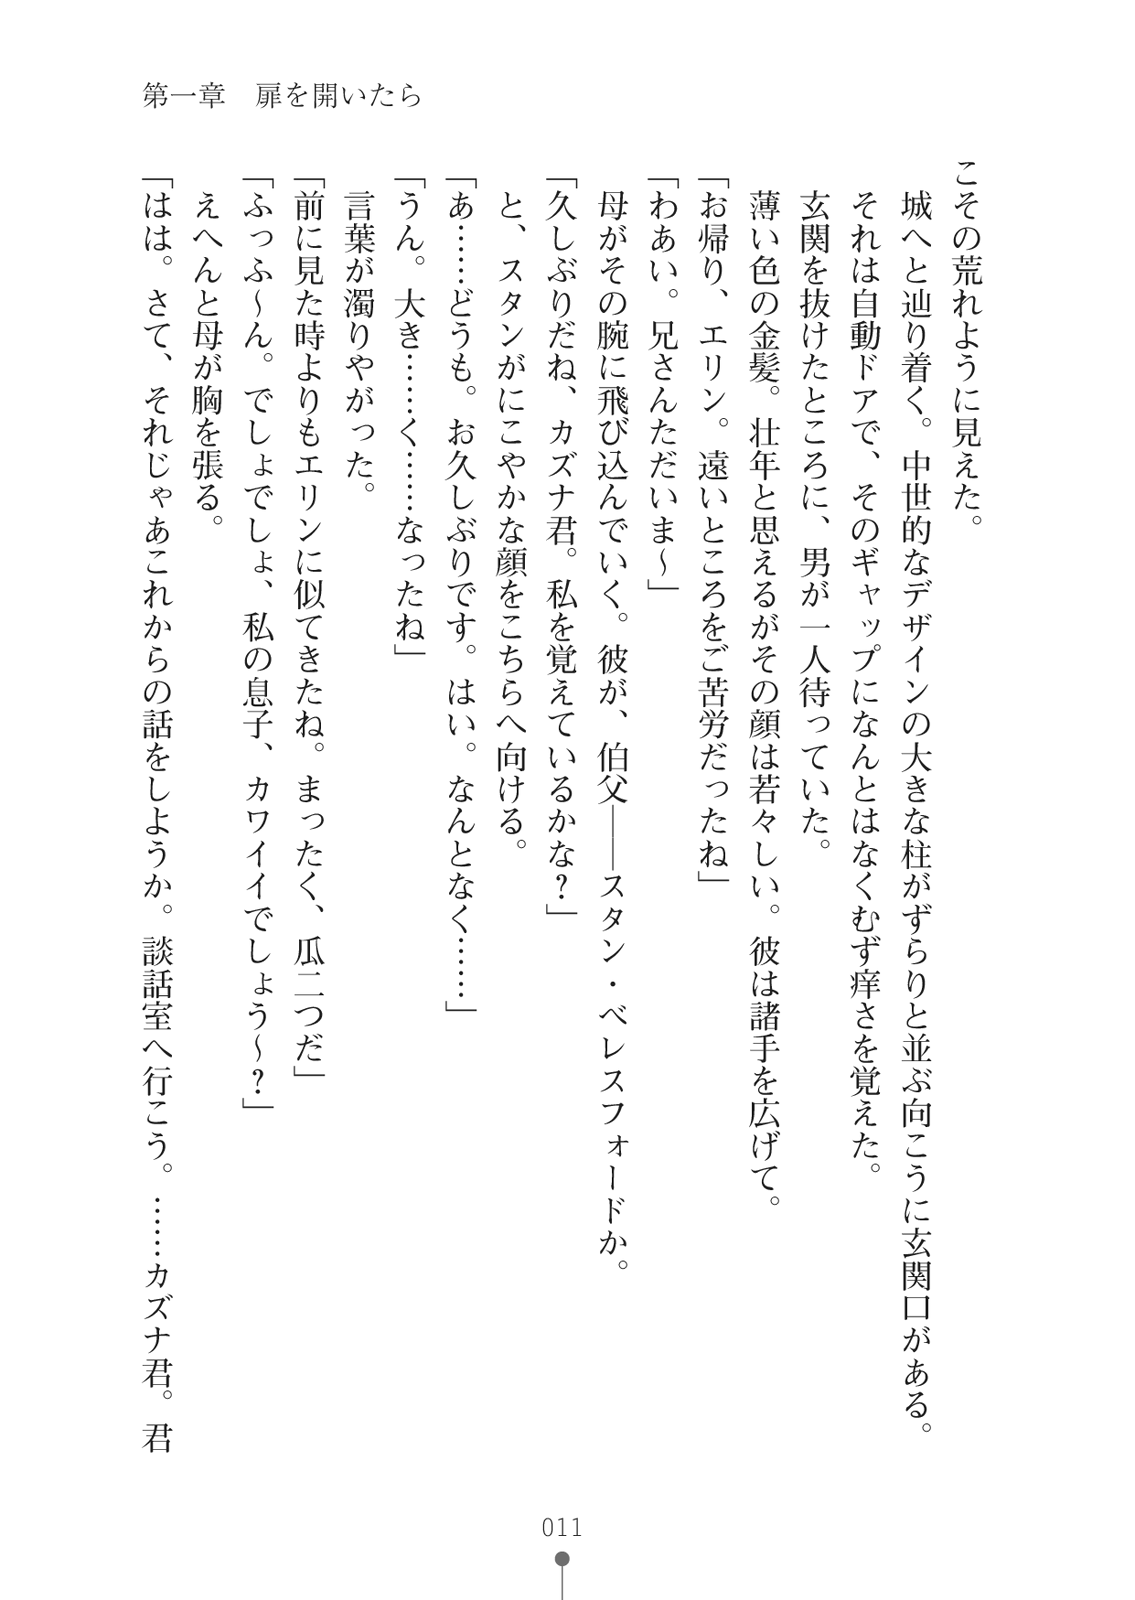 第一章　扉を開いたら
こその荒れように見えた。
城へと辿り着く。中世的なデザインの大きな柱がずらりと並ぶ向こうに玄関口がある。
それは自動ドアで、そのギャップになんとはなくむず痒さを覚えた。
玄関を抜けたところに、男が一人待っていた。
薄い色の金髪。壮年と思えるがその顔は若々しい。彼は諸手を広げて。
「お帰り、エリン。遠いところをご苦労だったね」
「わあい。兄さんただいま～」
母がその腕に飛び込んでいく。彼が、伯父――スタン・ベレスフォードか。
「久しぶりだね、カズナ君。私を覚えているかな？」
と、スタンがにこやかな顔をこちらへ向ける。
「あ……どうも。お久しぶりです。はい。なんとなく……」
「うん。大き……く……なったね」
言葉が濁りやがった。
「前に見た時よりもエリンに似てきたね。まったく、瓜二つだ」
「ふっふ～ん。でしょでしょ、私の息子、カワイイでしょう～？」
えへんと母が胸を張る。
「はは。さて、それじゃあこれからの話をしようか。談話室へ行こう。……カズナ君。君
011